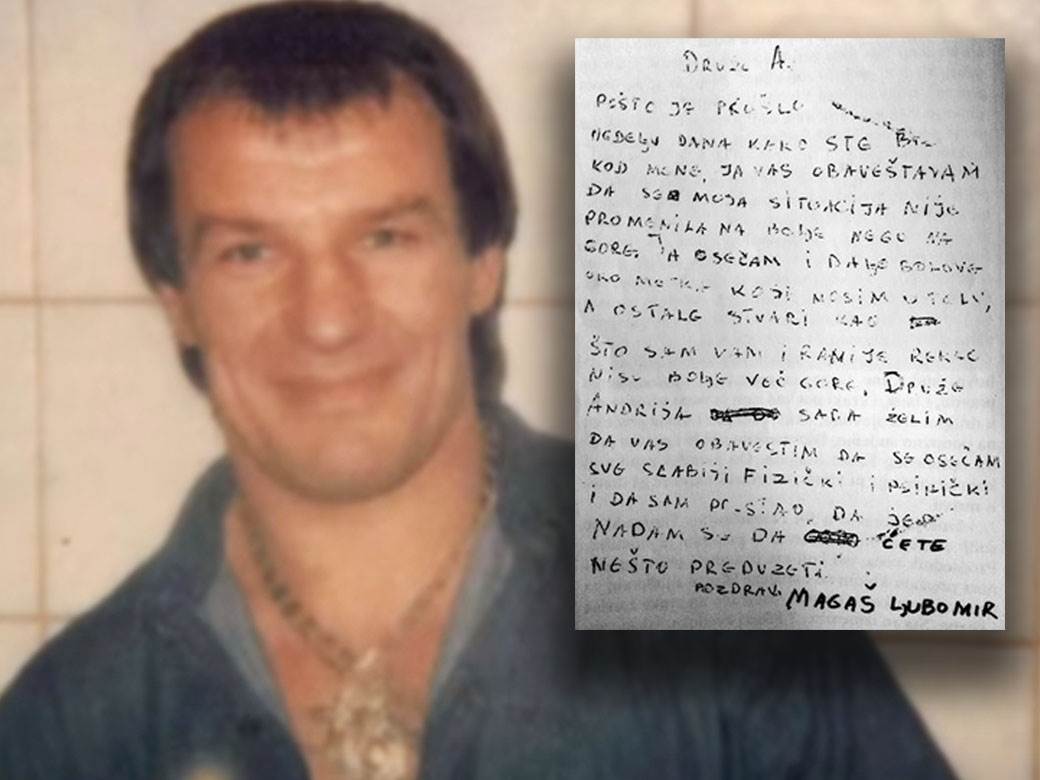 DRUŽE A.
POŠTO JE PROŠLO
NEDELJU DANA KAKO STE
KOD MENE, JA VAS OBAVEŠTAVAM
DA SE MOJA SITUACIJA NIJE
PROMENILA NA BOLJE NEGO NA
GORE, JA OSEČAM I DALJE BOLOVE
OKO METKA KOJI NOSIM U TELU,
A OSTALE STVARI KAO
ŠTO SAM VAM I RANIJE REKAO
NISU BOLJE VEČ GORE, DRUŽE
ANDRIJA SADA ŽELIM
DA VAS OBAVESTIM DA SE OSEČAM
SVE SLABIJI FIZIČKI I PSIHIČKI
I DA SAM DA
NADAM SE DA ČETE
NEŠTO PREDUZETI.
POZDRAV. MAGAŠ LJUBOMIR